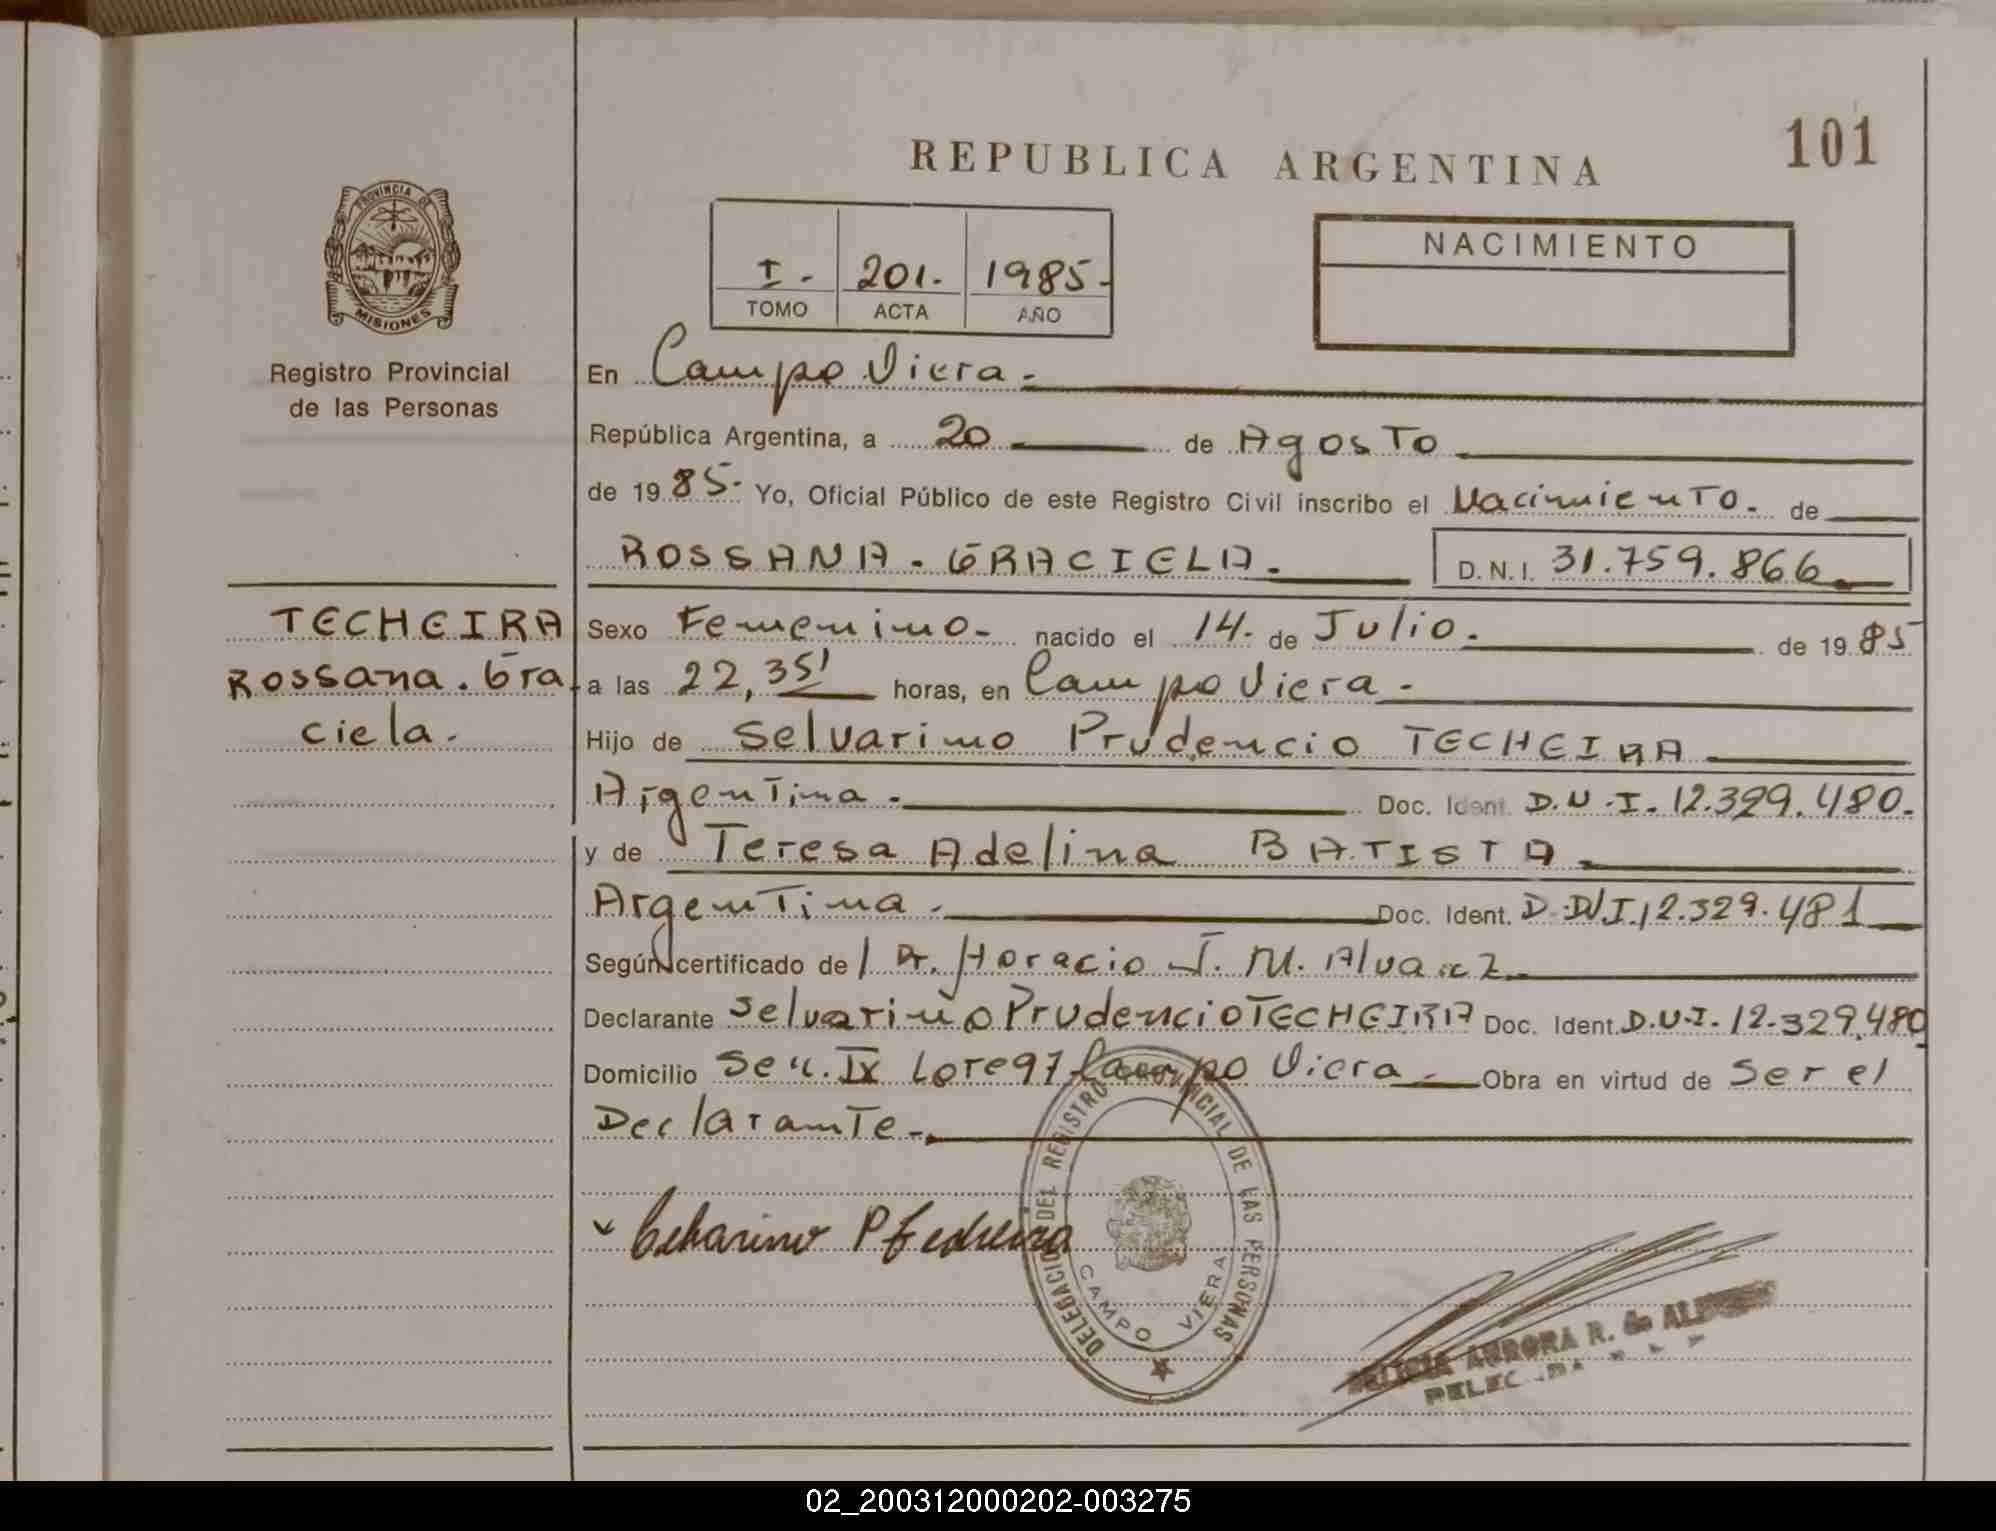 REPUBLICA ARGENTINA
101
PROVINCIA DE
MISIONES
Registro Provincial
de las Personas
I.- 201.- 1985.-
TOMO ACTA AÑO
NACIMIENTO
En Campo Viera.-
República Argentina, a 20 de Agosto
de 1985.- Yo, Oficial Público de este Registro Civil inscribo el Nacimiento.- de
ROSSANA. GRACIELA.
D.N.I. 31.759.866
TECHEIRA
Rossana. Gra
ciela.-
Sexo Femenino.- nacido el 14. de Julio. de 1985
a las 22,35' horas, en Campo Viera.-
Hijo de Selvarino Prudencio TECHEIRA
Argentina.- Doc. Ident. D.N.I. 12.329.480.
y de Teresa Adelina BATISTA
Argentina.- Doc. Ident. D.N.I. 12.329.481
Según certificado de Dr. Horacio J. M. Alvarez
Declarante Selvarino Prudencio TECHEIRA Doc. Ident. D.N.I. 12.329.480
Domicilio Secc. IX Lote 97 Campo Viera.- Obra en virtud de Ser el
Declarante.-
DELEGACION DEL REGISTRO PROVINCIAL DE LAS PERSONAS
CAMPO VIERA
AURORA R. de
02_200312000202-003275